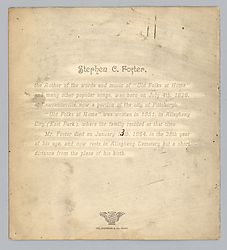 Stephen C. Foster,
the Author of the words and music of "Old Folks at Home"
and many other popular songs, was born on July 4th, 1826,
at Lawrenceville, now a portion of the city of Pittsburgh.
"Old Folks at Home" was written in 1851, in Allegheny
City, (East Park), where the family resided at that time.
Mr. Foster died on January 13th, 1864, in the 38th year
of his age, and now rests in Allegheny Cemetery but a short
distance from the place of his birth.